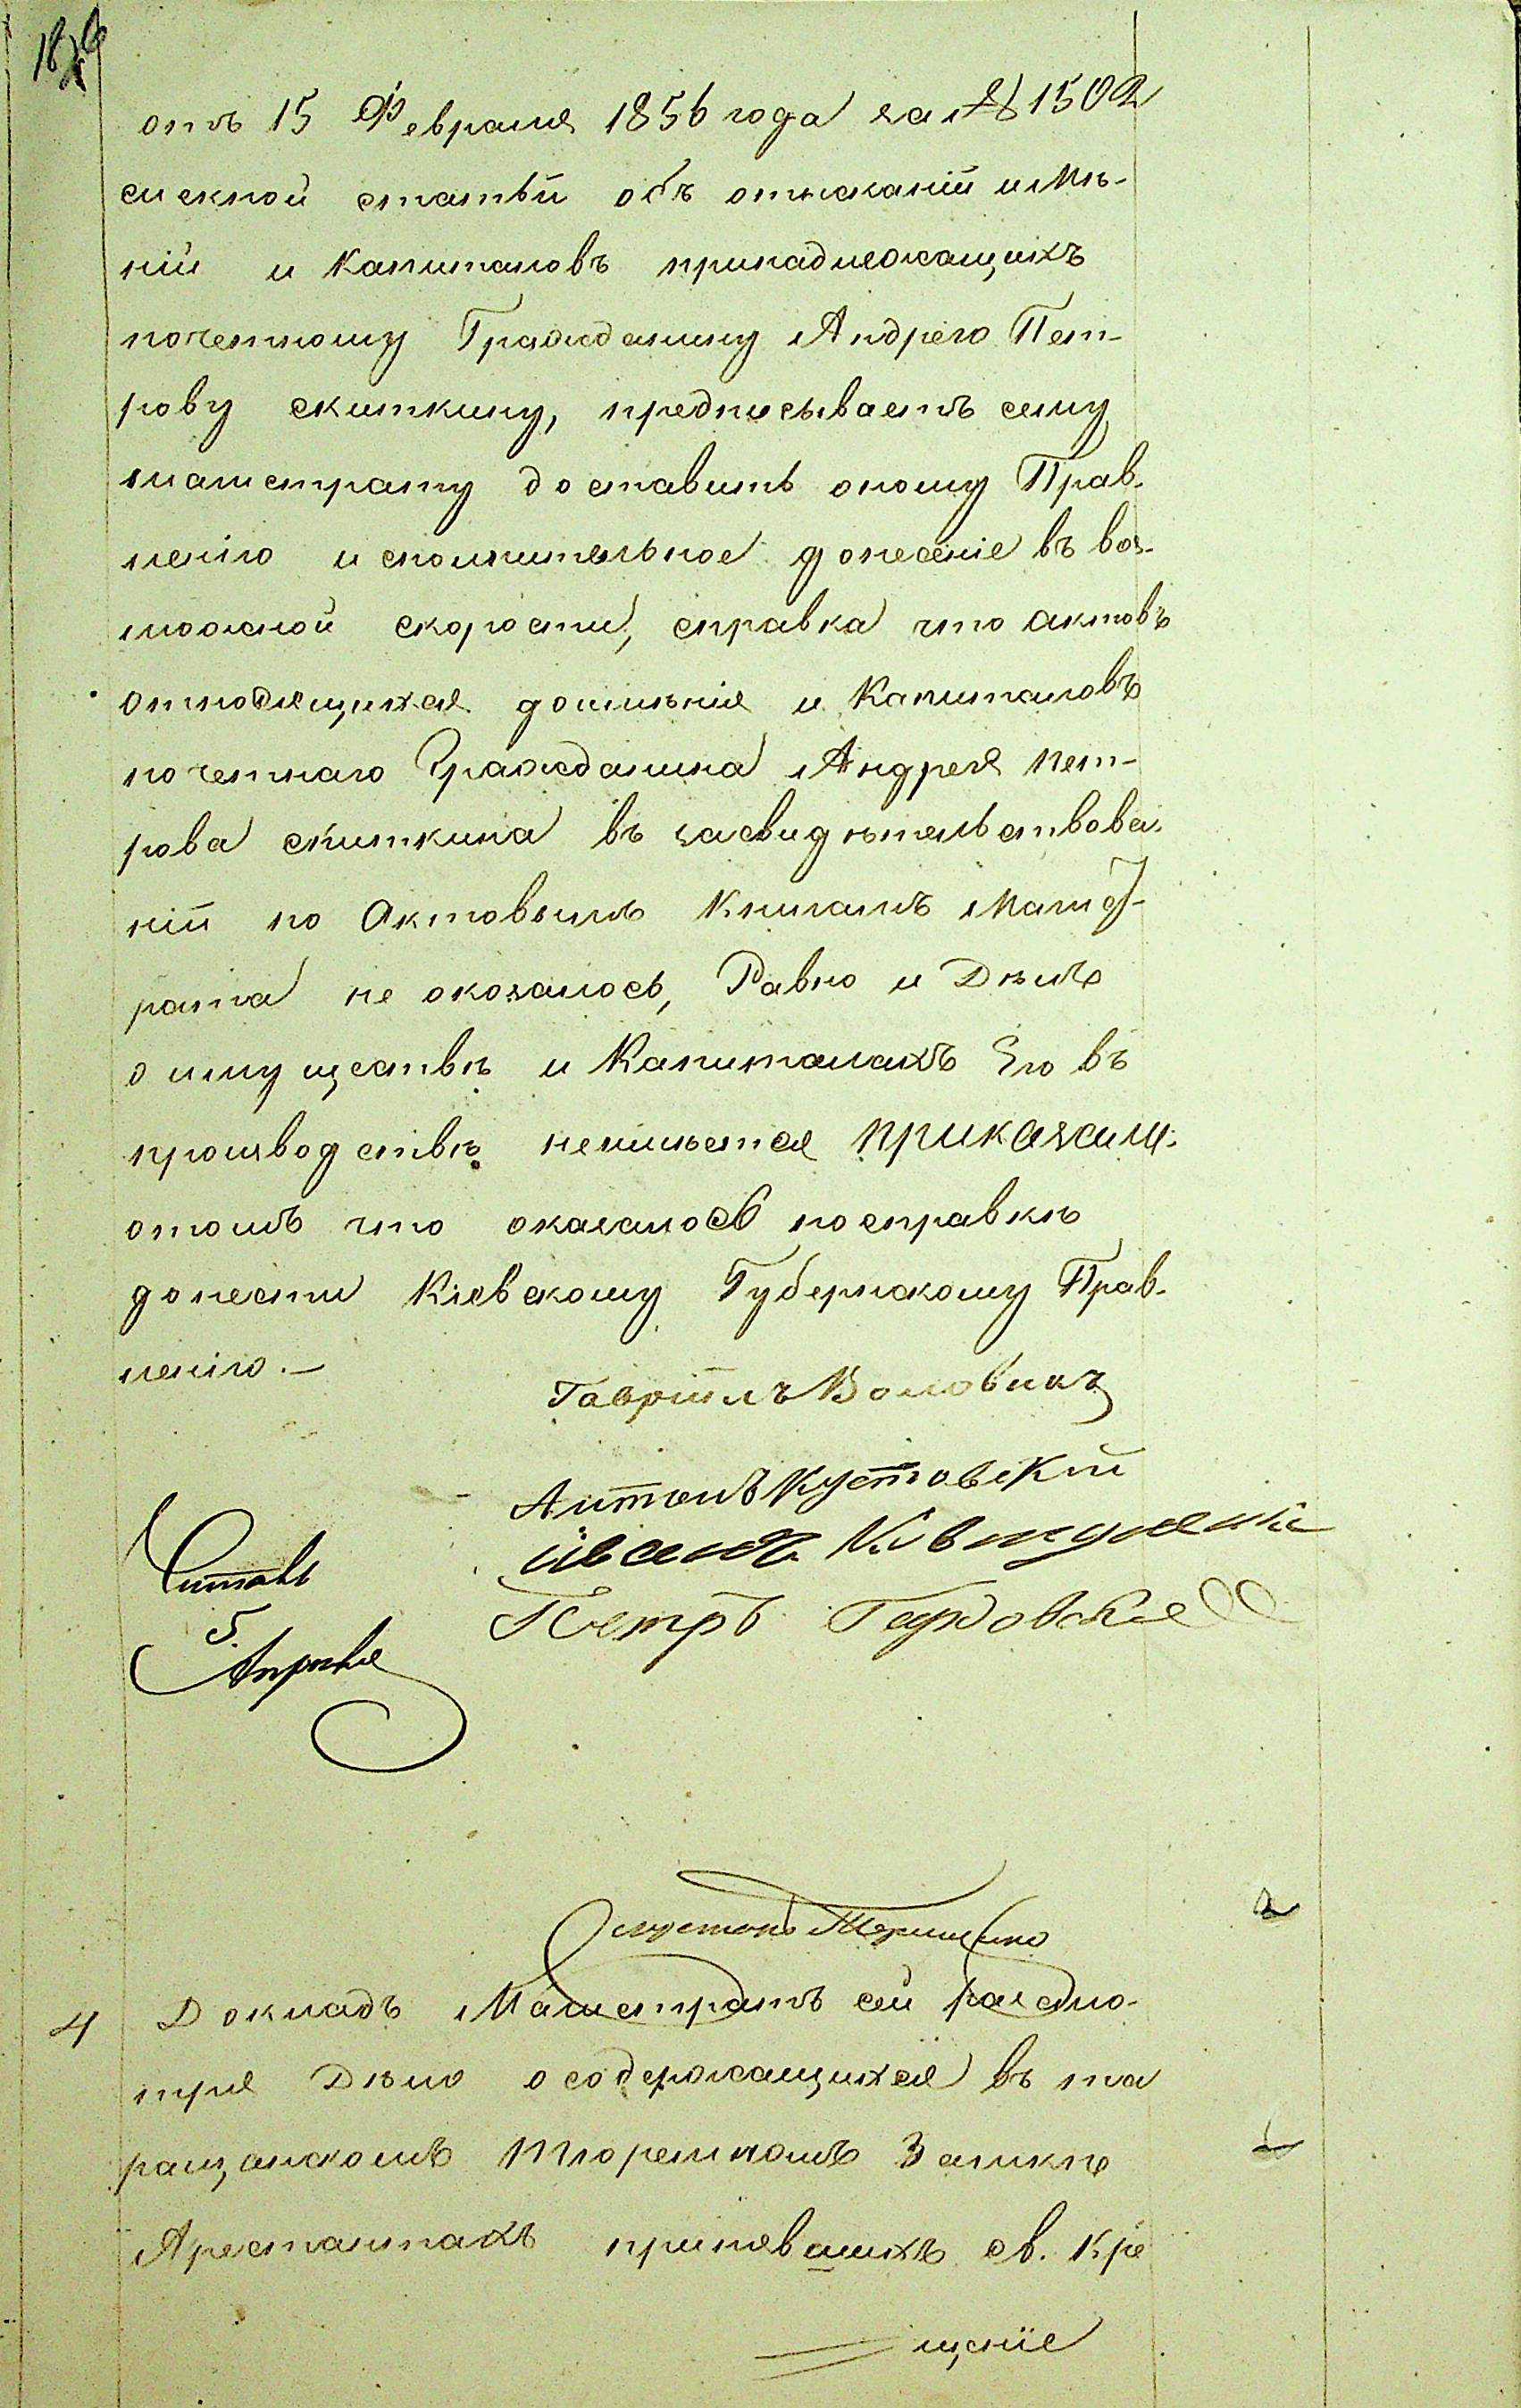 отъ 15 Февраля 1856 года за № 1502
сыскной статьи объ отысканіи имѣ-
ній и Капиталовъ принадлежащихъ
почетному Гражданину Андрею Пет-
рову скиткину, предписываетъ сему
магистрату доставить оному Прав-
ленію исполнительное донесеніе въ воз-
можной скорости, справка что актовъ
относящихся доимѣнія и Капиталовъ
почетнаго Гражданина Андрея Пет-
рова скиткина въ засвидѣтельствова-
ніи по Актовымъ Книгамъ Магист-
рата не оказалось, Равно и Дѣлъ
о имуществѣ и Капиталахъ Его въ
производствѣ неимѣется приказали:
отомъ что оказалось посправкѣ
донести Кіевскому Губернскому Прав-
ленію.—
Гавріилъ Воловикъ
Антонъ Кустовскій
Иванъ
Петръ
Читалъ
5. Апрѣля
4 Докладъ Магистратъ сей разсмо-
тря Дѣло осодержащихся въ та
ращанскомъ Тюремномъ Замкѣ
Арестантахъ принявшихъ св. Кре
щеніе